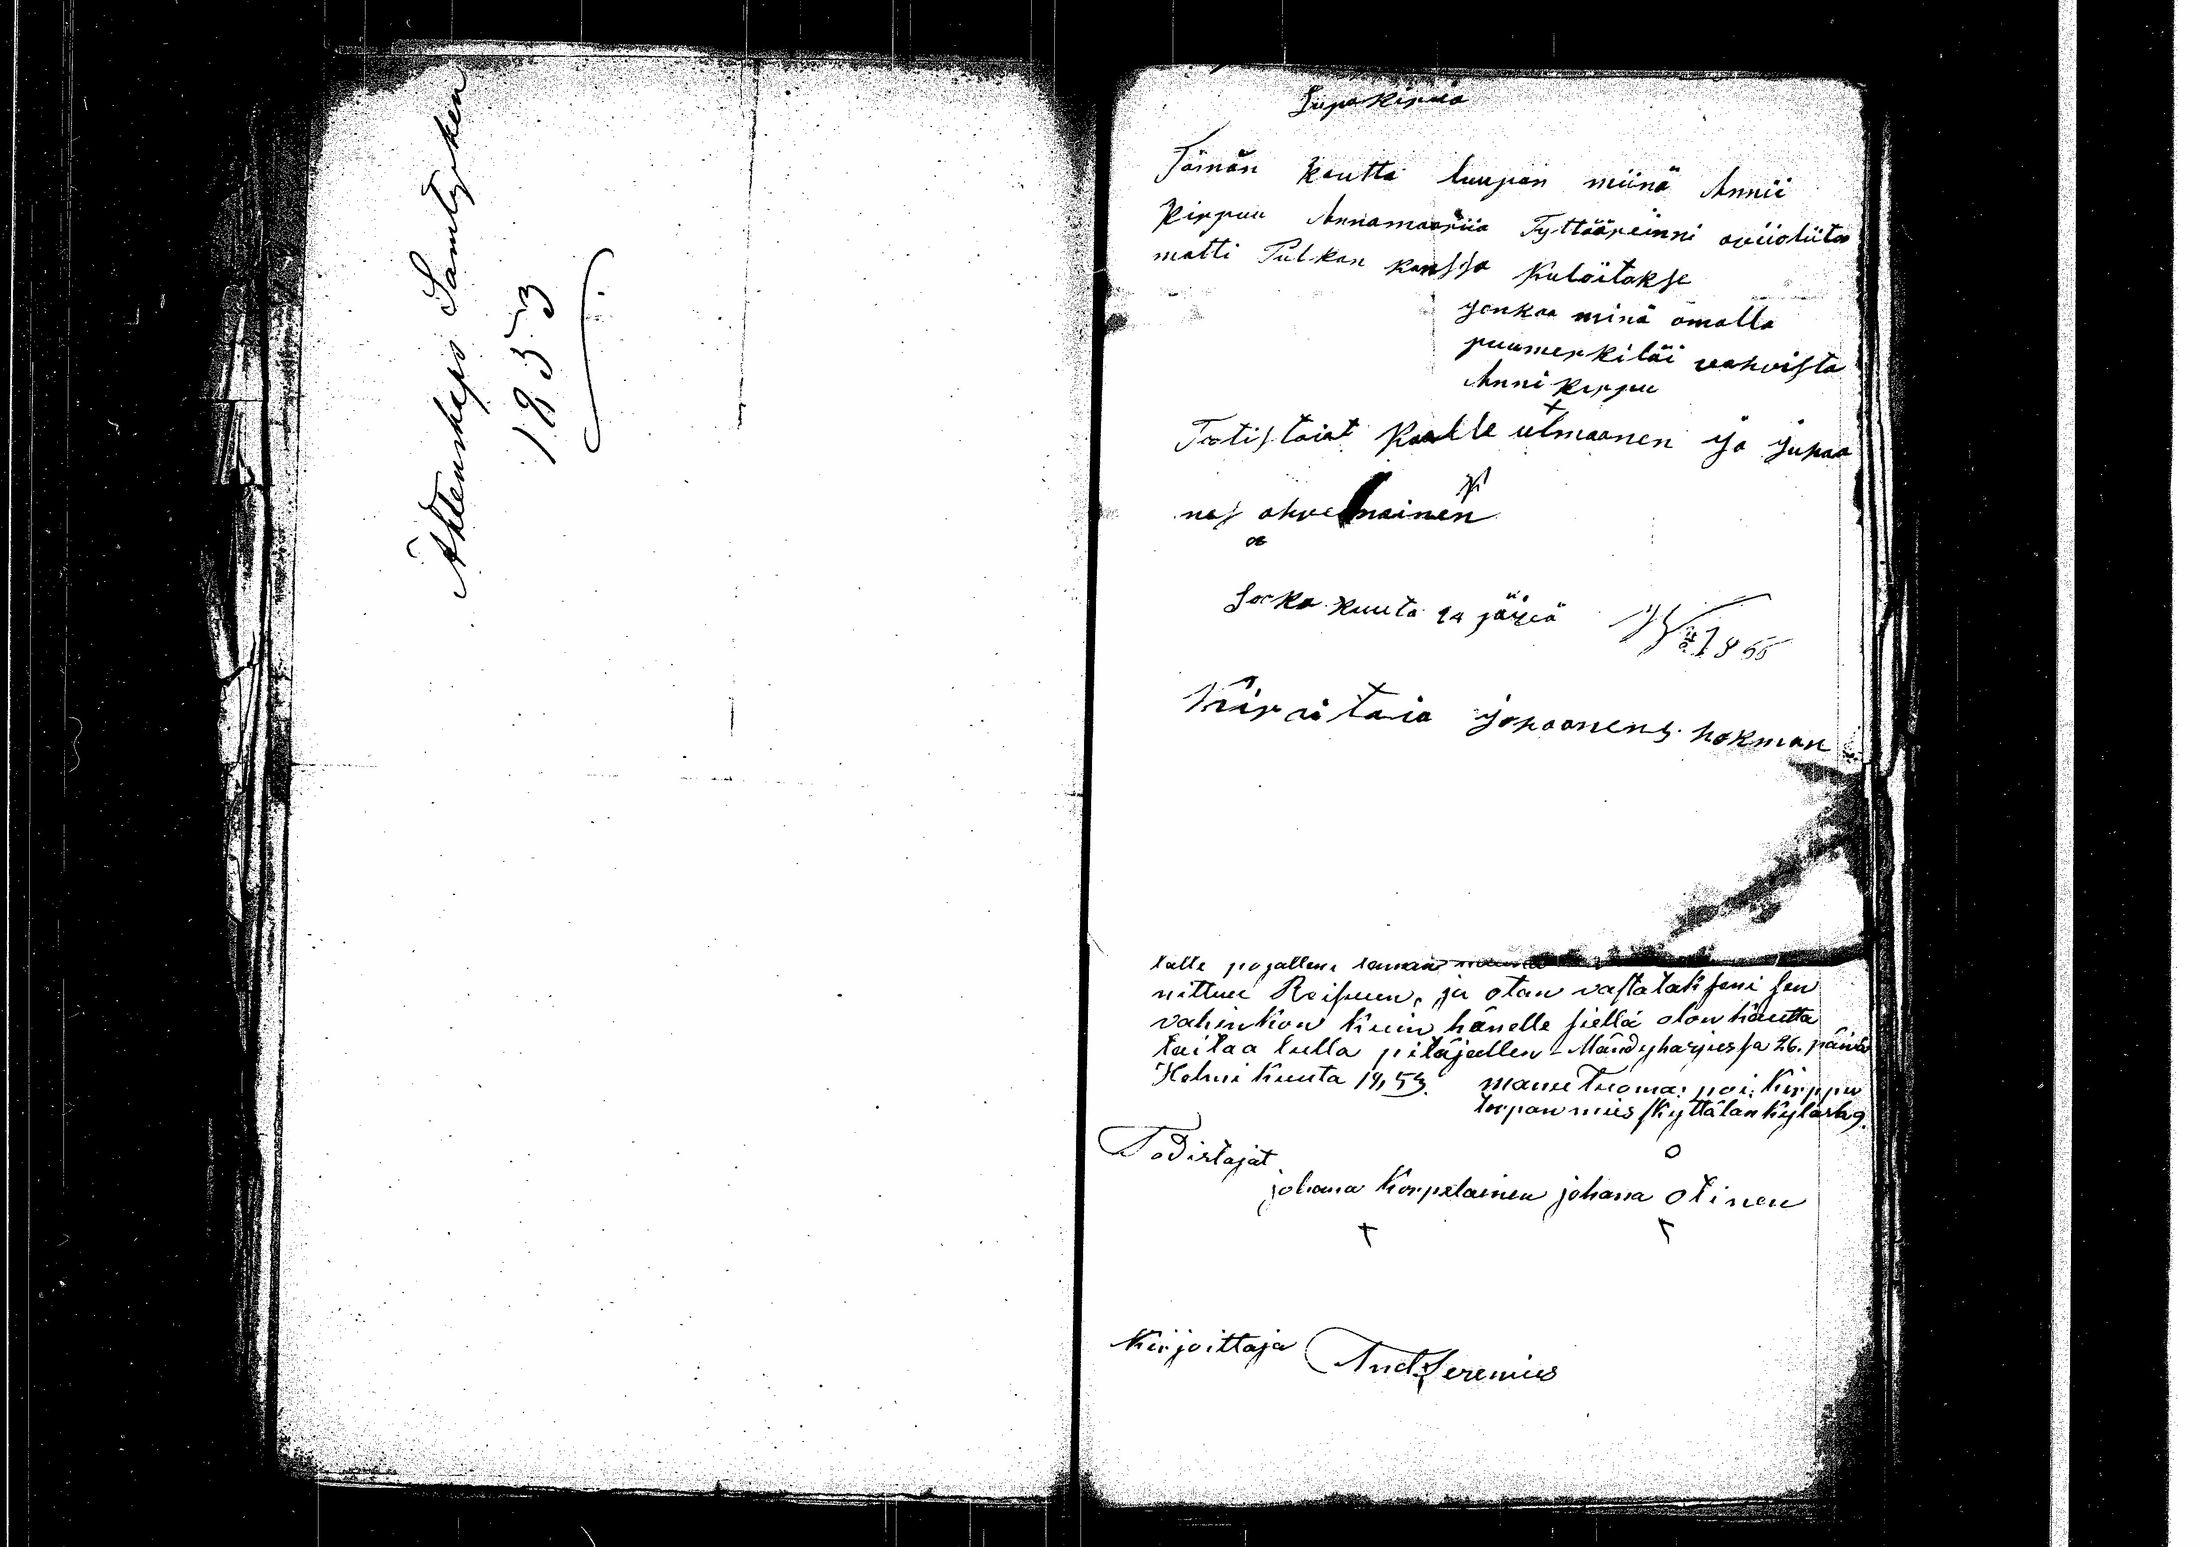 Äktenskaps Samtyken
1853
Lupakirria
Tämän kautta luupan miinä Annii
Kirpuu Annamaariia Tyttääreinni aviioliiton
matti Pulkan kanssa Kuloitakse
jonkaa minä omalla
puumerkiläi vahvista
Anni Kirppu
Tootistaiat Kaalle ulmaanen ja juhaa
nas ahvenainen
Loka kuuta 24 päiviä 1855
Kirritaia johaanens hokman
talle pojalleni
nittuu Reisuun, ja otan vastatakseni sen
vahinkon kuin hänelle siellä olon kautta
taitaa tulla pitäjällen - Mändyharjussa 26. päivä
Helmi kuuta 1853. manu Tuomas poi. Kirppu
torpan mies Kyttälan kylästä 9.
Todistajat
johana Korpelainen johana Otinen
Kirjoittaja And. Jeremies